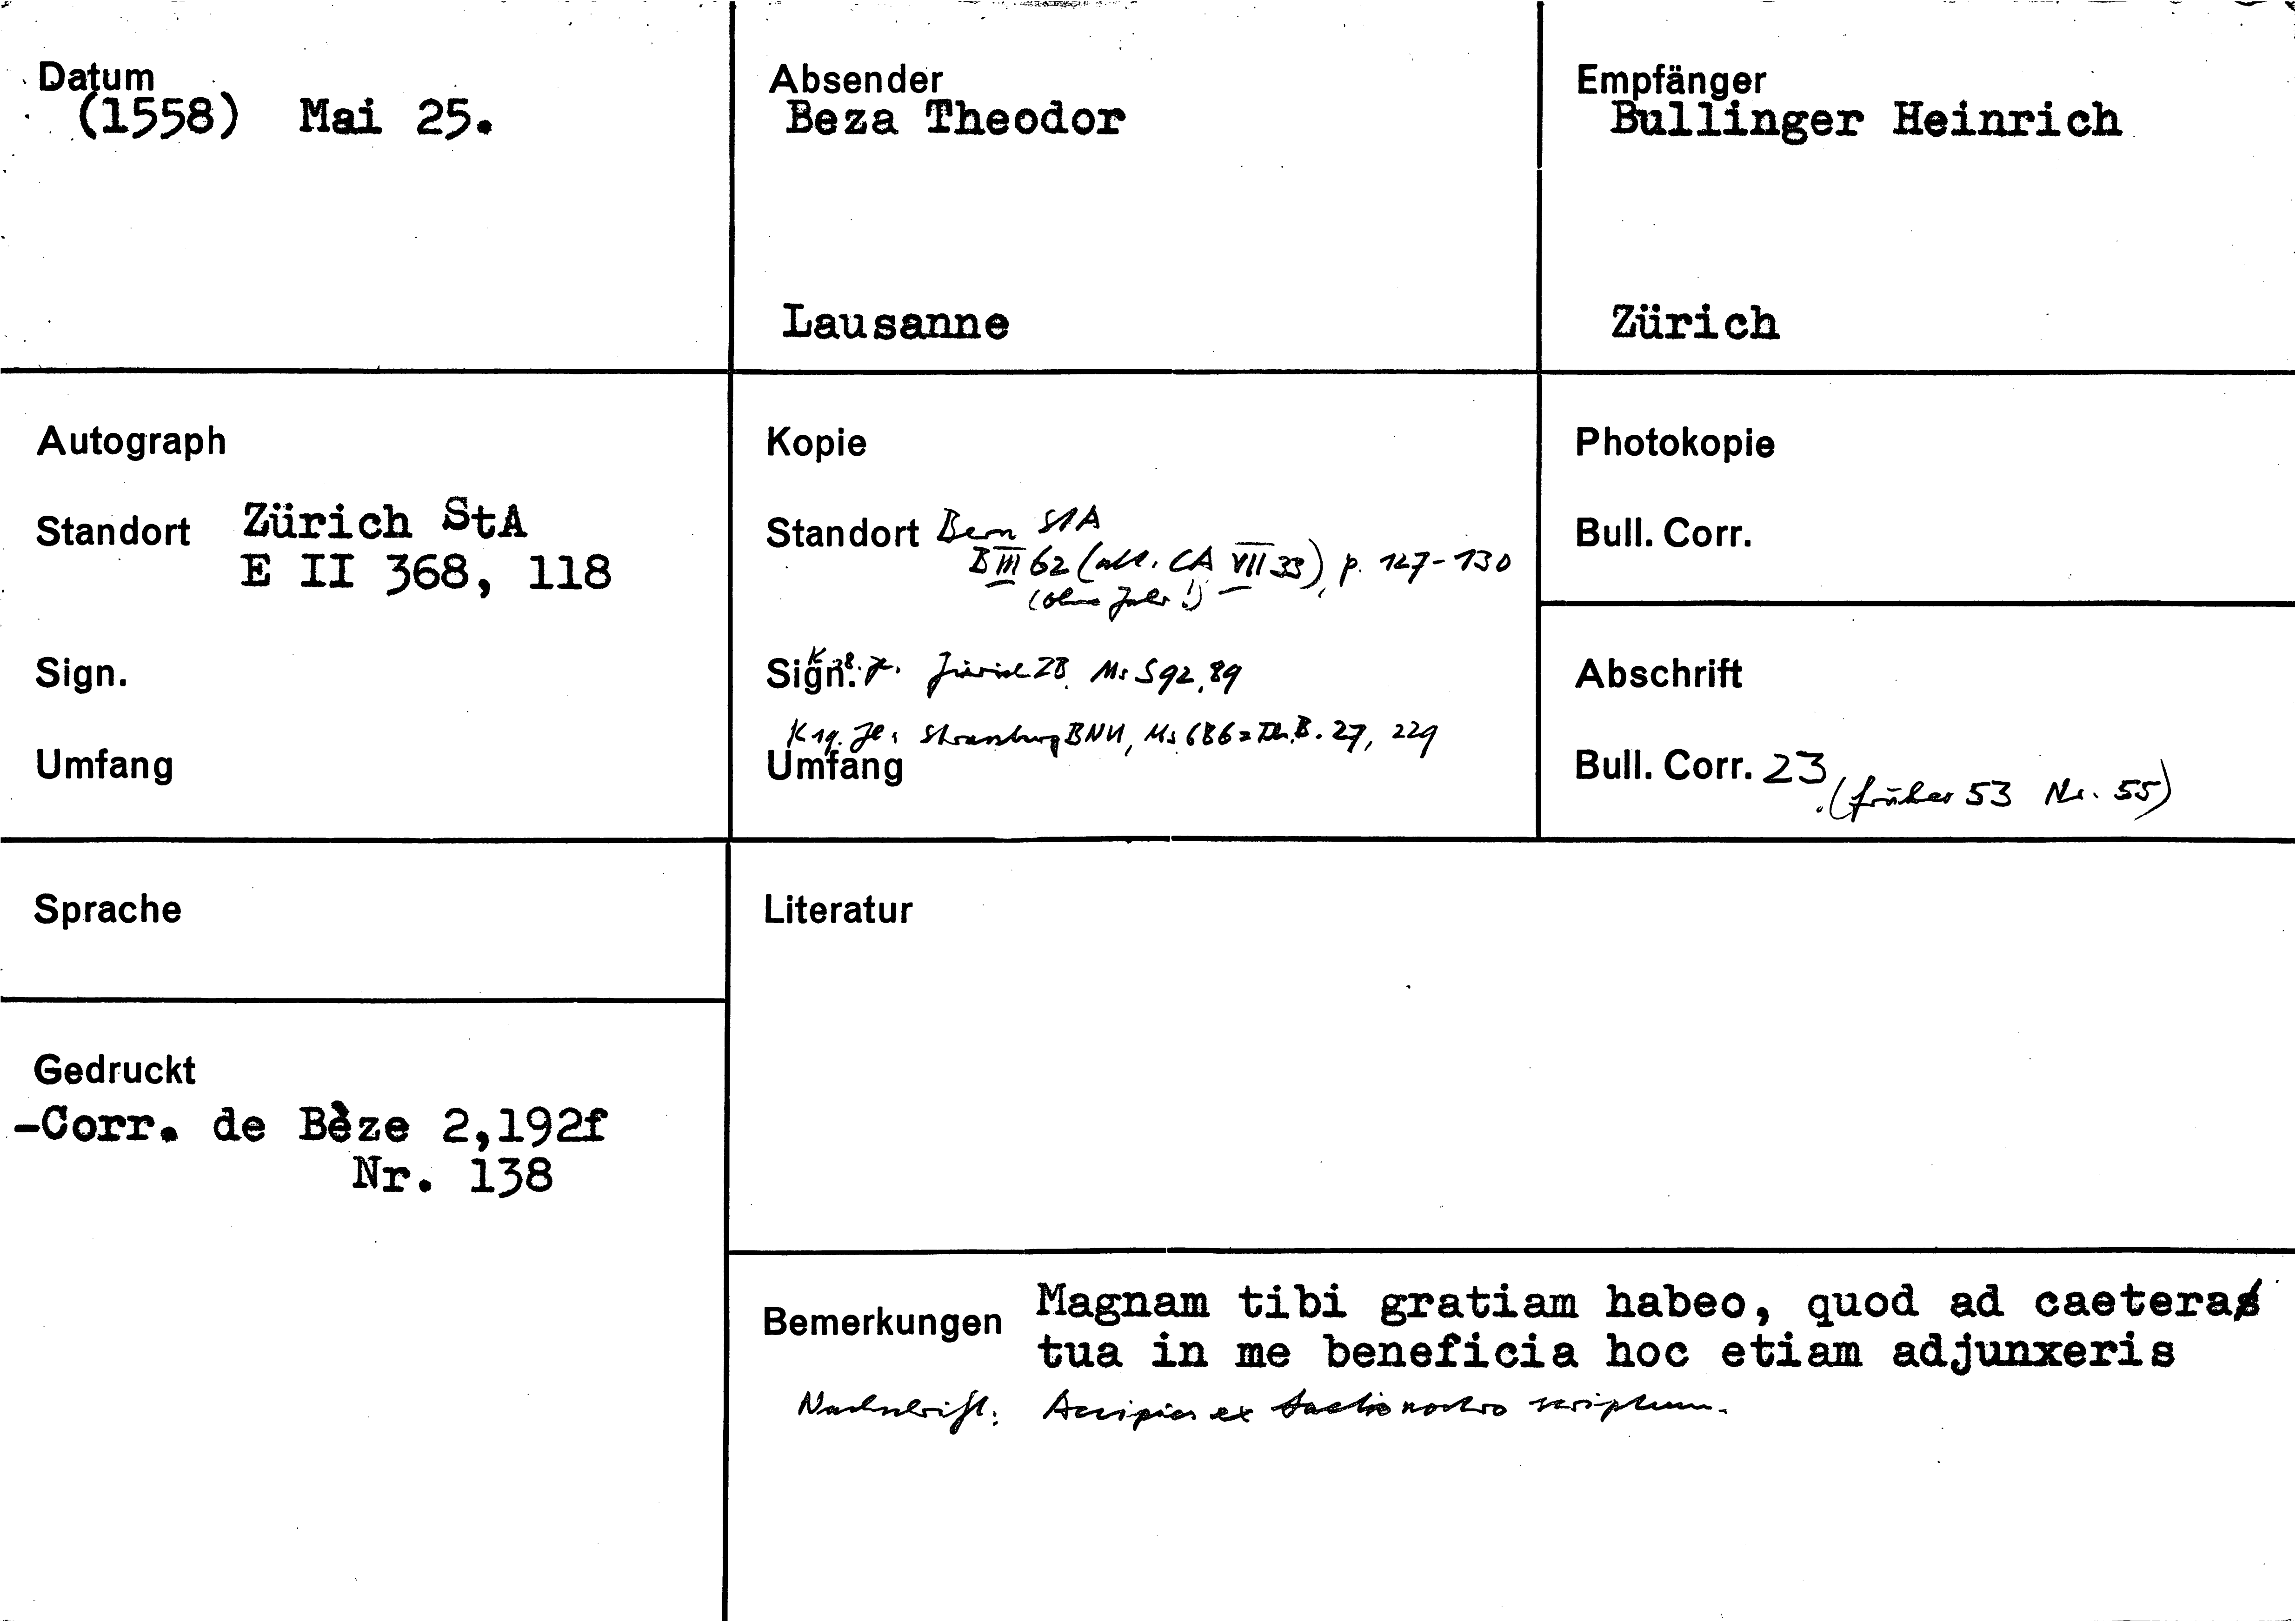 Datum
(1558) Mai 25.
Absender
Beza Theodor
Lausanne
Empfänger
Bullinger Heinrich
Zürich
Autograph
Standort Zürich StA
E II 368, 118
Sign.
Umfang
Kopie
Standort Bern StA
B III 62 (alt. CA VII 33), p. 127-130
(ohne Jahr!)
Sign. K 18. Jh. Zürich ZB, Ms S 92, 89
K 19. Jh: Strassburg BNU, Ms 686 = Th. B. 27, 229
Umfang
Photokopie
Bull. Corr.
Abschrift
Bull. Corr. 23
(früher 53 Nr. 55)
Sprache
Gedruckt
-Corr. de Bèze 2,192f
Nr. 138
Literatur
Bemerkungen Magnam tibi gratiam habeo, quod ad caetera
tua in me beneficia hoc etiam adjunxeris
Nachschrift: Accipies ex nostro scriptum.